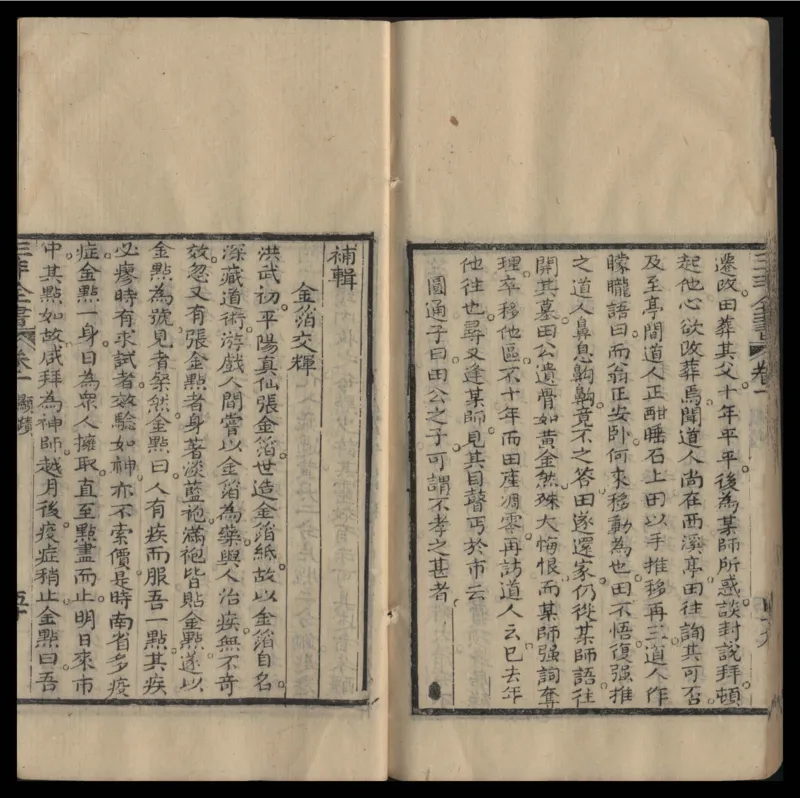 三丰全書 卷一
遷改田葬其父十年平平後為某師所惑談封說拜頓
起他心欲改葬焉聞道人尚在西溪亭田往詢其可否
及至亭間道人正酣睡石上田以手推移再三道人作
矇矓語曰而翁正安卧何來移動為也田不悟復強推
之道人鼻息齁齁竟不之答田遂還家仍從某師語往
開其墓田公遺骨如黃金然殊大悔恨而某師強詞奪
理卒移他區不十年而田產凋零再訪道人云已去年
他往也尋又逢某師見其目瞽丐於市云
圓通子曰田公之子可謂不孝之甚者
補輯
金箔交輝
洪武初平陽真仙張金箔世造金箔紙故以金箔自名
深藏道術游戲人間嘗以金箔為藥與人治疾無不奇
效忽又有張金點者身著淡藍袍滿袍皆貼金點遂以
金點為號見者粲然金點曰人有疾而服吾一點其疾
必瘳時有求試者效驗如神亦不索價是時南省多疫
症金點一身日為衆人擁取直至點盡而止明日來市
中其點如故咸拜為神師越月後疫症稍止金點曰吾
三丰全書 卷一 顯蹟 五十